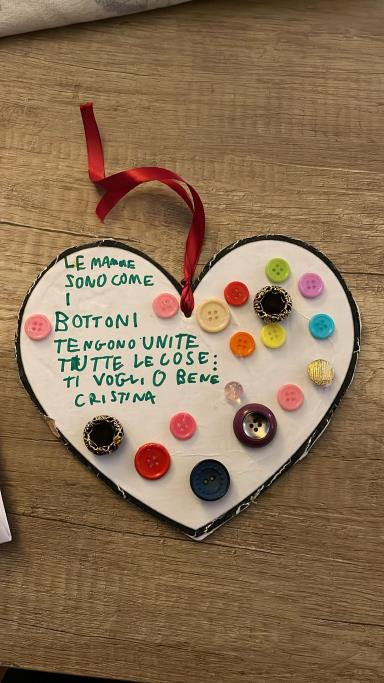 LE MAMME
SONO COME
I
BOTTONI
TENGONO UNITE
TUTTE LE COSE:
TI VOGLIO BENE
CRISTINA